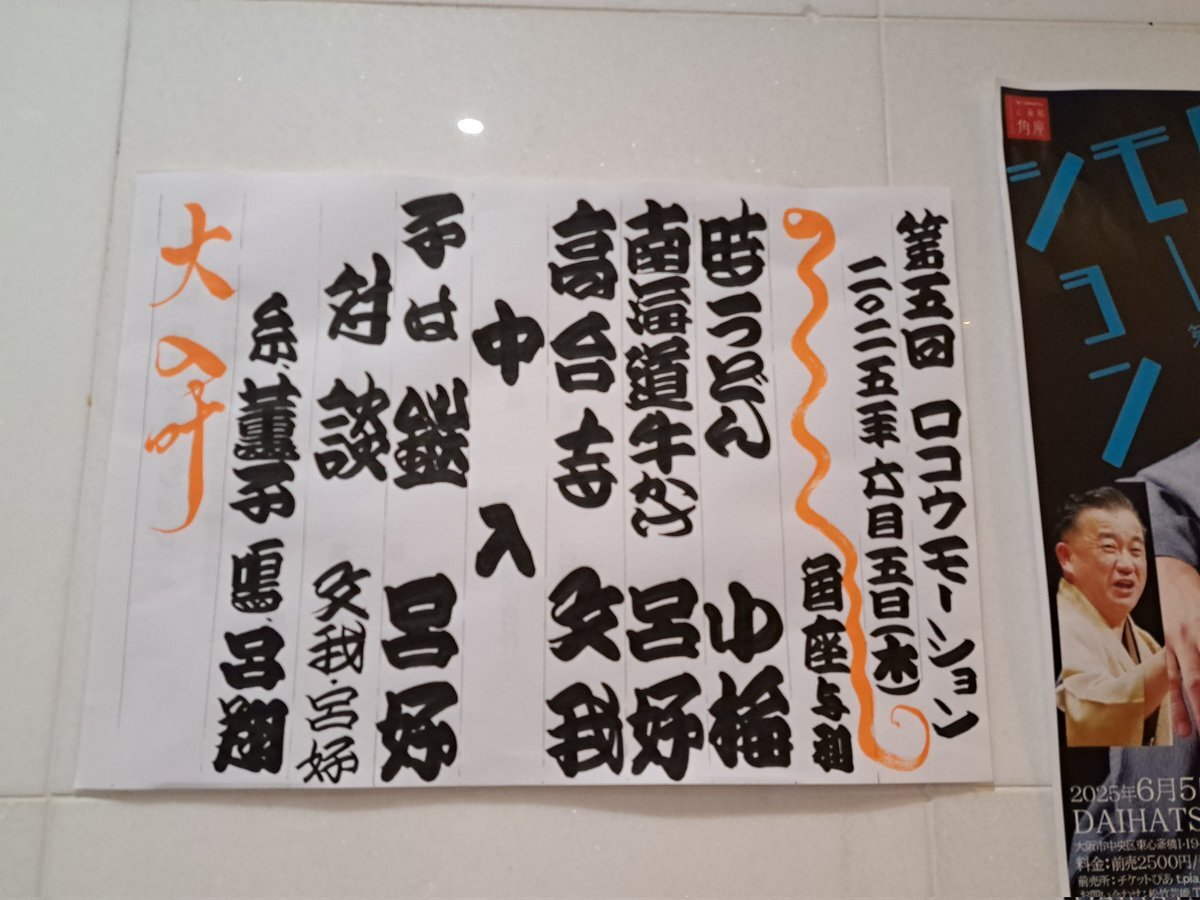 第五回 ロコウモーション
二〇二五年 六月五日(木)
角座与利
時うどん 小梅
南海道牛かけ 呂好
高台寺 文我
中入
子は鎹 呂好
対談 文我・呂好
糸.薫子 鳴.呂翔
大入叶
角座
2025年6月5
DAIHATS
大阪市中央区東心斎橋1-19-
料金:前売2500円/
前売所:チケットぴあ t.pia.
お問い合わせ:松竹芸能 T